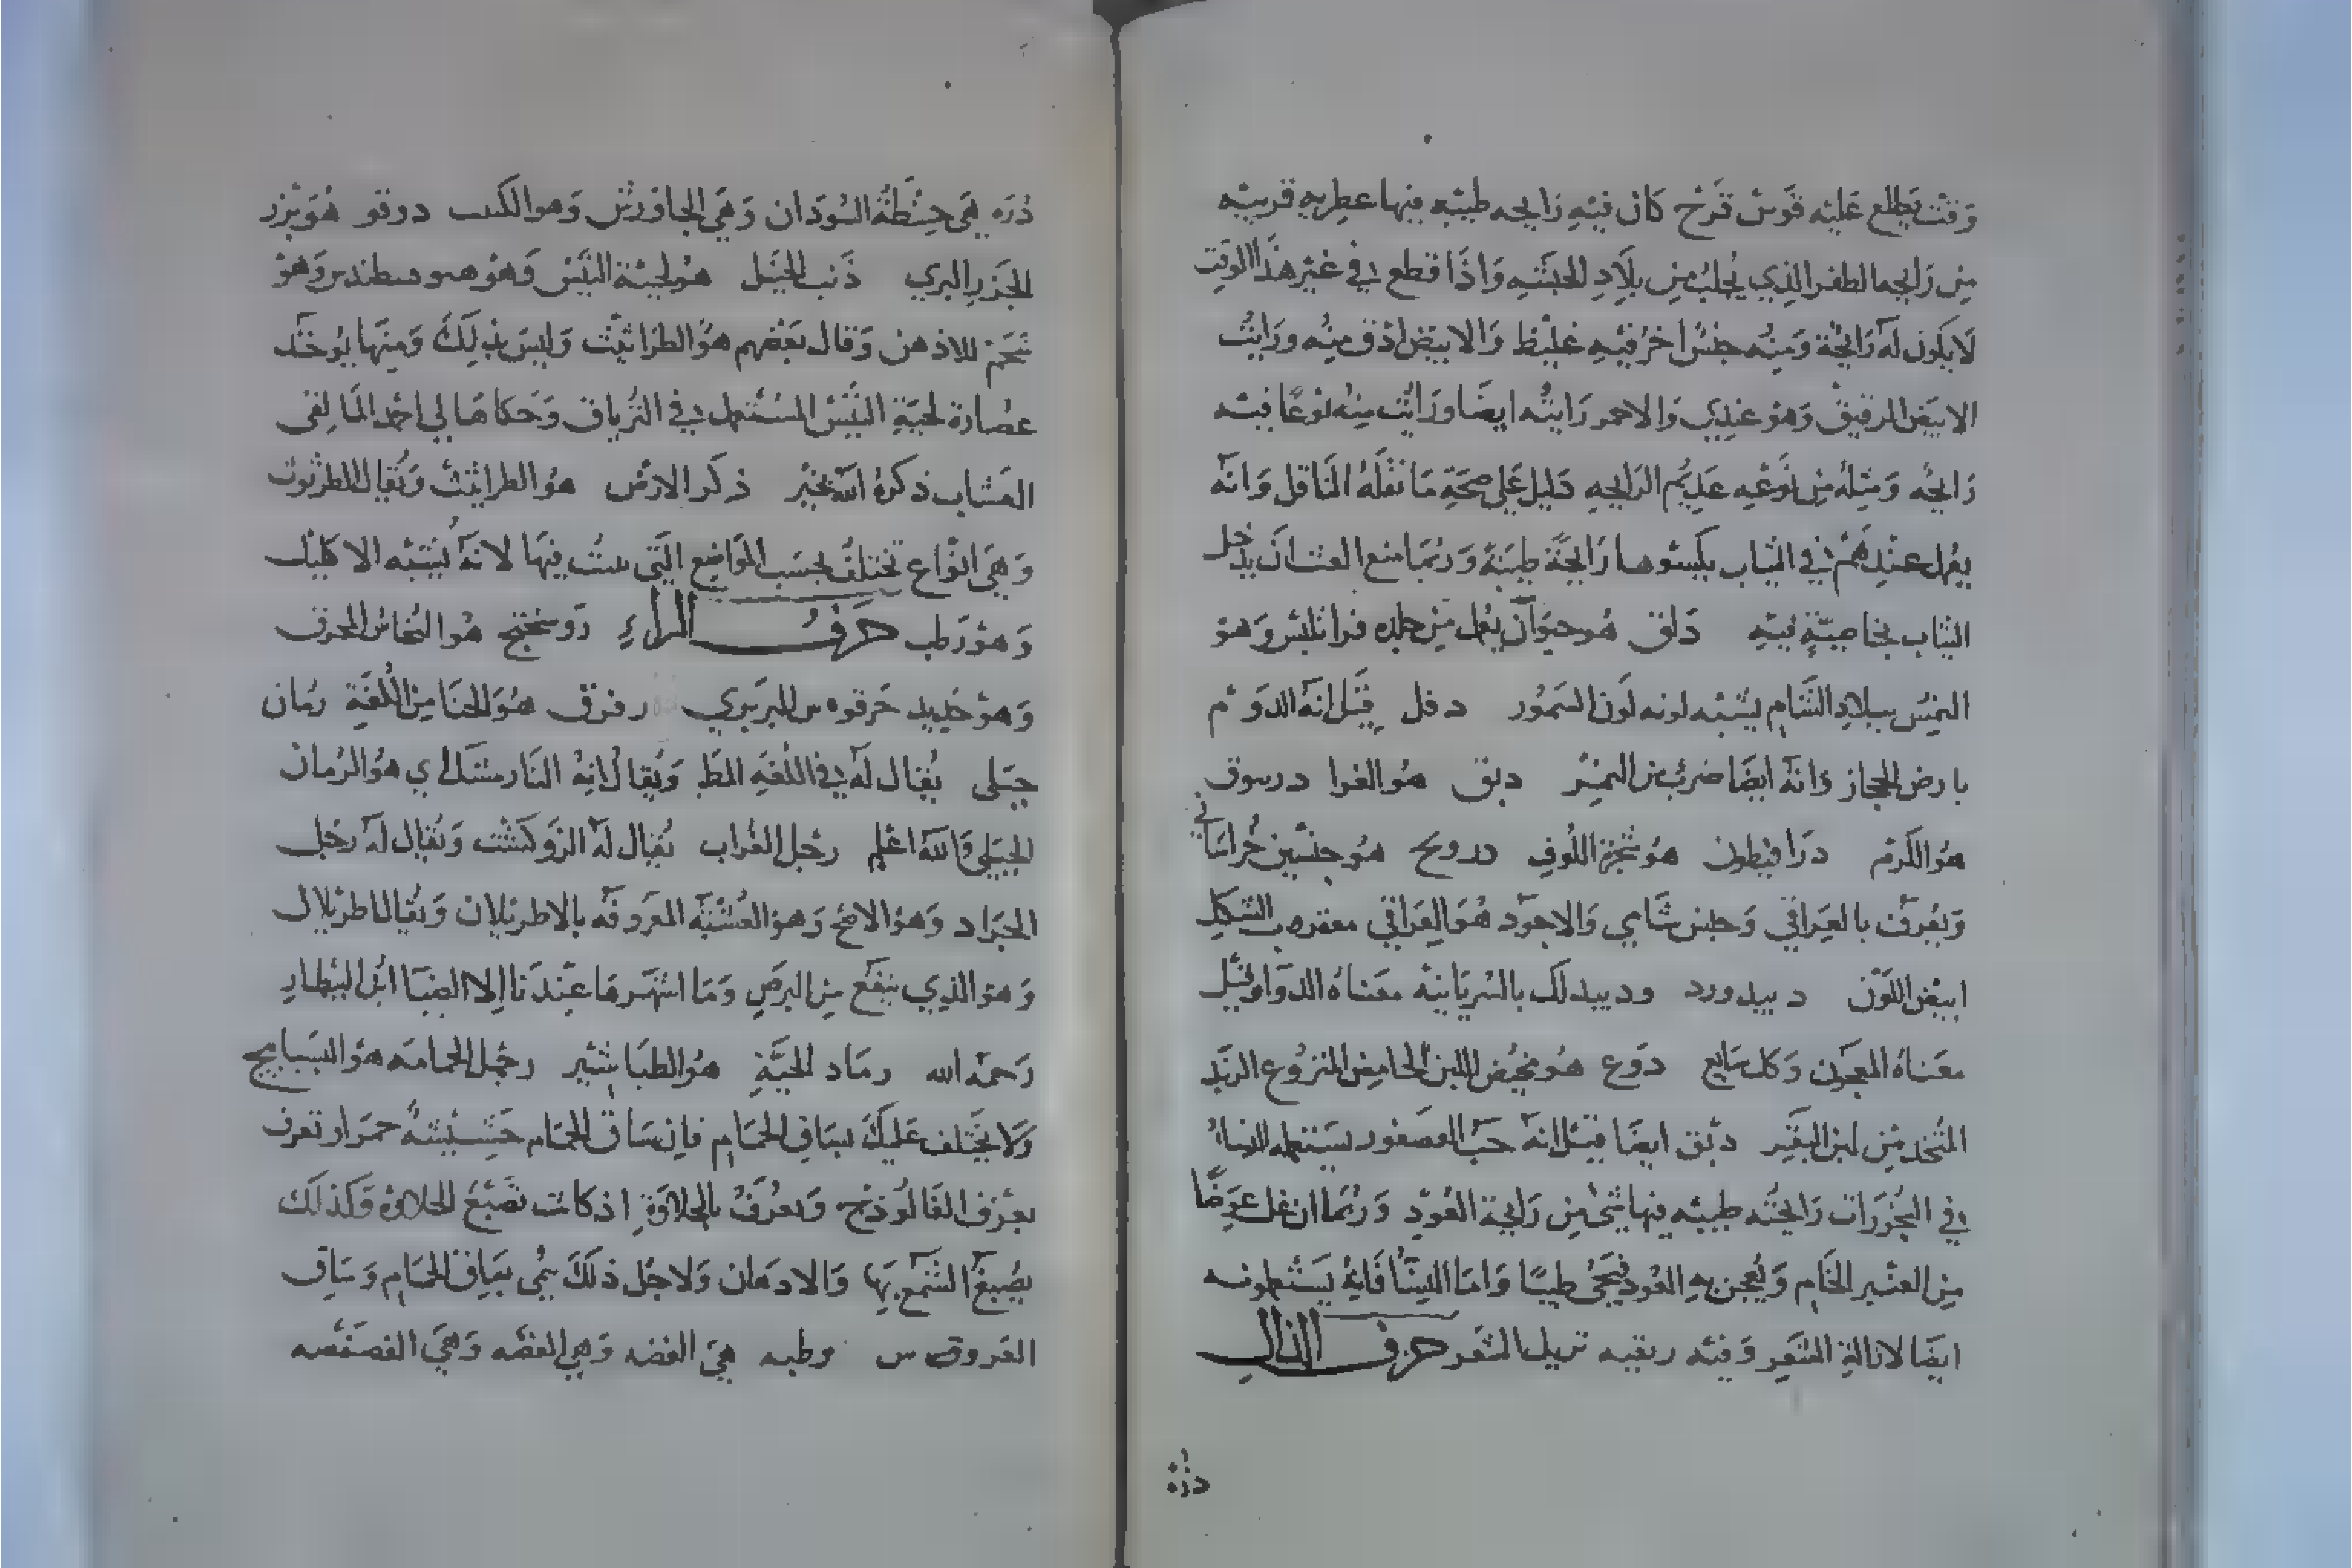 وَقتْ يَطلع عَليْه قَوسْ قزح كَان فيْهِ رَايحه طيبَه فيها عطريه قريبَه
مِن رَايحه الظفر الذِي يُجلبْ مِن بلَادِ الحبشَه وَاذَا قطع في غيْر هذَا الوقت
لَا يكوُن لهَ رَائحَة وَمِنْه جنسْ اخرُ فيْه غليْظ وَالابيَض ادَق مِنْه ورَايْتْ
الابيَض الرقيقْ وَهوَ عندِي وَالاحمر رَايتُه ايضًا ورَايْت مِنْه نوْعًا فيه
رَايحُه وَمِثلهُ مِن نوَعْه عَدِيْم الرَايحه دَليْل عَلي صحَة مَا نقلَهُ النَاقل وَانهَ
يعْمل عندِهُمْ في الثياب يكسبُوها رَايحَةً طيبَة وَرُبمَا منع العث ان يدْخل
الثياب بخاصيّةٍ فيْه دَلق هُو حيَوَان يعْمل مِن جلده فرا تلبسْ وَهوَ
النِمسْ ببلَادِ الشَام يشبْه لونه لوَن السَمُّور دفل قيْل انهَ الدَوْم
بارضِ الحجاز وَانهَ ايضًا ضربْ مِن التمْر دبق هُو الغرا درسوق
هُوَ الكرْم دَرَاقيطون هوُ شجَرة اللوُفِ درونج هُوَ جنسَين خُراسَاني
وَيعُرف بالعِرَاقي وَجنس شَامي وَالاجوَد هُوَ العِرَاقي معقرب الشكلِ
ابيَض اللوَن دبيدورد ودبيدلك بالسُريَانيَة معَناهُ الدوَا وَقيْل
معَناهُ المعجُون وَكل مَايع دوَع هُو مخيْض اللبن الحَامِض المنزوُع الزبَدِ
المتخد مِن لبن البقَر دبْق ايضًا قيْل انهَ حَبّ العصفور يستعْمله النساءُ
في البخُورَات رَايحَتُه طيبَه فيها شيْ مِن رَايحَة العُودِ وَرُبمَا ان عمل عوضًا
مِن العنبر الخَام وَيُعجن بهِ العُود فيجَيُ طيبًا وَامَا النِسَا فَانهُ يستعْملونه
ايضًا لازالة الشعَر وَفيْه ريقيه تزيل الشعَر حرف الذال
دُرَة
دُرَه هيَ حِنطَةُ السُودَان وَهيَ الجَاوَرْس وَهو الكنب دوقو هُوَ بزر
الجزرِ البري ذَنب الخيَل هوُ لحيَة التيَسْ وَهوَ هيوفسطيداس وَهوَ
شحَم للاذهن وَقال بعَضهم هوَ الطرَاثيْث وَليسَ بذَلِكَ وَمِنهَا يوُخَذ
عصَارة لحيَةِ التَيسْ المسُتعْمل في التريَاق وَحكاهَا لي احمد المَالِقي
العَشاب ذكرهُ اللهَ بخيَر ذكَر الارْض هوَ الطراثيْث وَيُقالُ للطرثوُث
وَهيَ انوْاع تختلفُ بحسَب المَوَاضِع التَي ينبتُ فيهَا لانهَ يُشبْه الاكليْل
وَهوَ رَطب حَرفُ الراءِ رَوسَختج هُوَ النُحَاسُ المحرَق
وَهوَ حَديد حَرقوه س البرَبري رقرق هُوَ الحنَا مِن اللغَةِ رُمان
جبَلى يُقال لهَ في اللغَةِ المظ وَيُقالُ انهُ النَار مشكَ اي هوُ الرُمان
الجبَلي وَاللهَ اعْلم رجْل الغُراب يُقال لهَ الزوَكشْت وَيُقال لهَ رجْل
الجَرَاد وَهوَ الاصَح وَهوَ العُشبَه المعرَوفَه بالاطريلان وَيُقال اطريْلال
وَهوَ الذِي ينفَع مِن البرصِ وَمَا اشتهَر مَا عِندَنا الا الضيَا ابْن البيطَارِ
رَحمَه الله رمَاد الحَيَّةِ هوَ الطبَاشيْر رجْل الحمَامَه هوَ السبَابيج
وَلَا يختَلف عَليْكَ بسَاق الحمَام فان سَاق الحمَام حَشيْشَةُ حمرَا وَتعرف
يعرف الفَالُوذج وَيعُرفْ بالحلَاوَةِ اذ كانت تصبَغُ الحَلاوَة وَكَذلكَ
يصُبغَ الشمَع بهَا وَالادهَان وَلاجْل ذلكَ سُمي بسَاق الحمَام وَسَاق
العَروق س رطبه هيَ الفصه وَهيَ الفصَه وَهيَ الفصَفصه